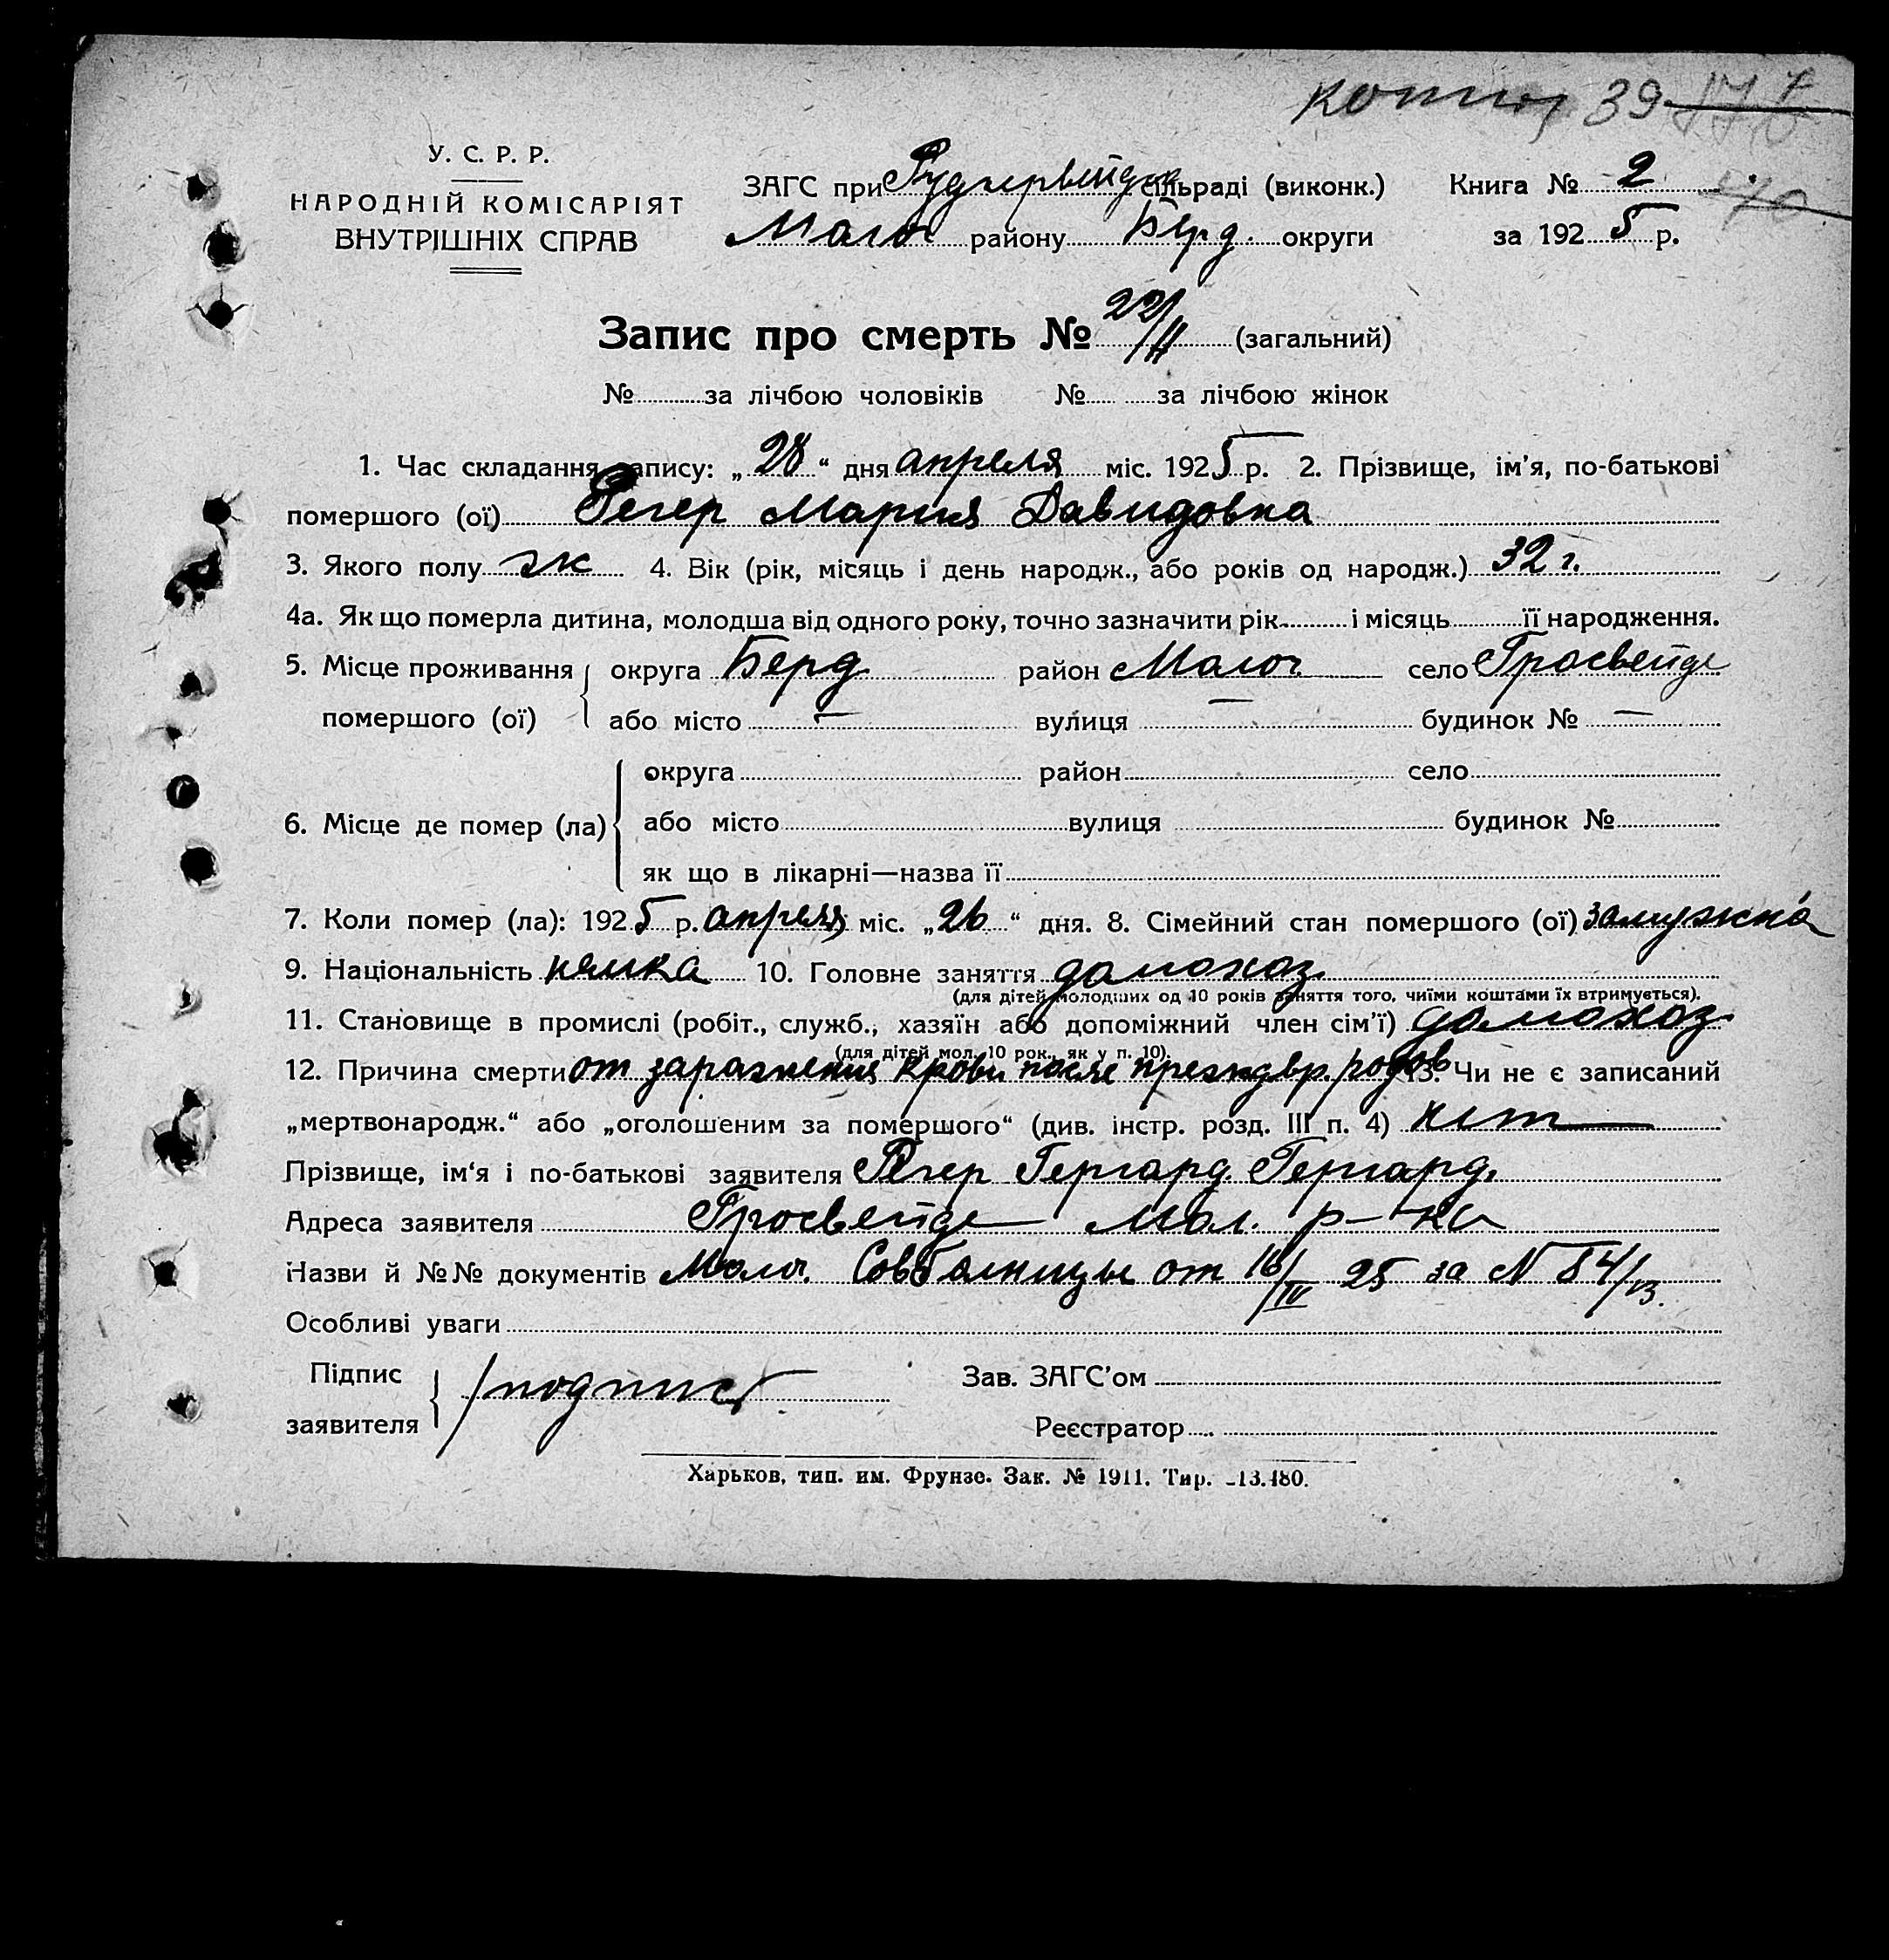 39
У. С. Р. Р.
НАРОДНІЙ КОМІСАРІЯТ
ВНУТРІШНІХ СПРАВ
ЗАГС при Рудnервейдск сільраді (виконк.) Книга № 2
Молоч району Берд. округи за 1925 р.
Запис про смерть № 22/II (загальний)
№ за лічбою чоловіків № за лічбою жінок
1. Час складання запису: „28“ дня апреля міс. 1925 р. 2. Прізвище, ім’я, по-батькові
помершого (ої) Регер Мария Давидовна
3. Якого полу ж 4. Вік (рік, місяць і день народж., або років од народж.) 32 г.
4а. Як що померла дитина, молодша від одного року, точно зазначити рік і місяць її народження.
5. Місце проживання округа Берд район Молоч село Гросвейде
помершого (ої) або місто — вулиця — будинок № —
округа район село
6. Місце де помер (ла) або місто вулиця будинок №
як що в лікарні—назва її
7. Коли помер (ла): 1925 р. апреля міс. „26“ дня. 8. Сімейний стан помершого (ої) замужна
9. Національність нямка 10. Головне заняття домохоз.
(для дітей молодших од 10 років заняття того, чиїми коштами їх втримується).
11. Становище в промислі (робіт., служб., хазяїн або допоміжний член сім’ї) домохоз.
(для дітей мол. 10 рок., як у п. 10).
12. Причина смерти от заражения крови после преждвр. родов 13. Чи не є записаний
„мертвонародж.“ або „оголошеним за помершого“ (див. інстр. розд. III п. 4) нет
Прізвище, ім‘я і по-батькові заявителя Регер Гергард. Гергард.
Адреса заявителя Гросвейде Мол. р-на
Назви й №№ документів Молоч. Совбольницы от 16/IV 25 за N 84/13.
Особливі уваги
Підпис
заявителя /подпись
Зав. ЗАГС’ом
Реєстратор
Харьков, тип. им. Фрунзе. Зак. № 1911. Тир. –13.480.